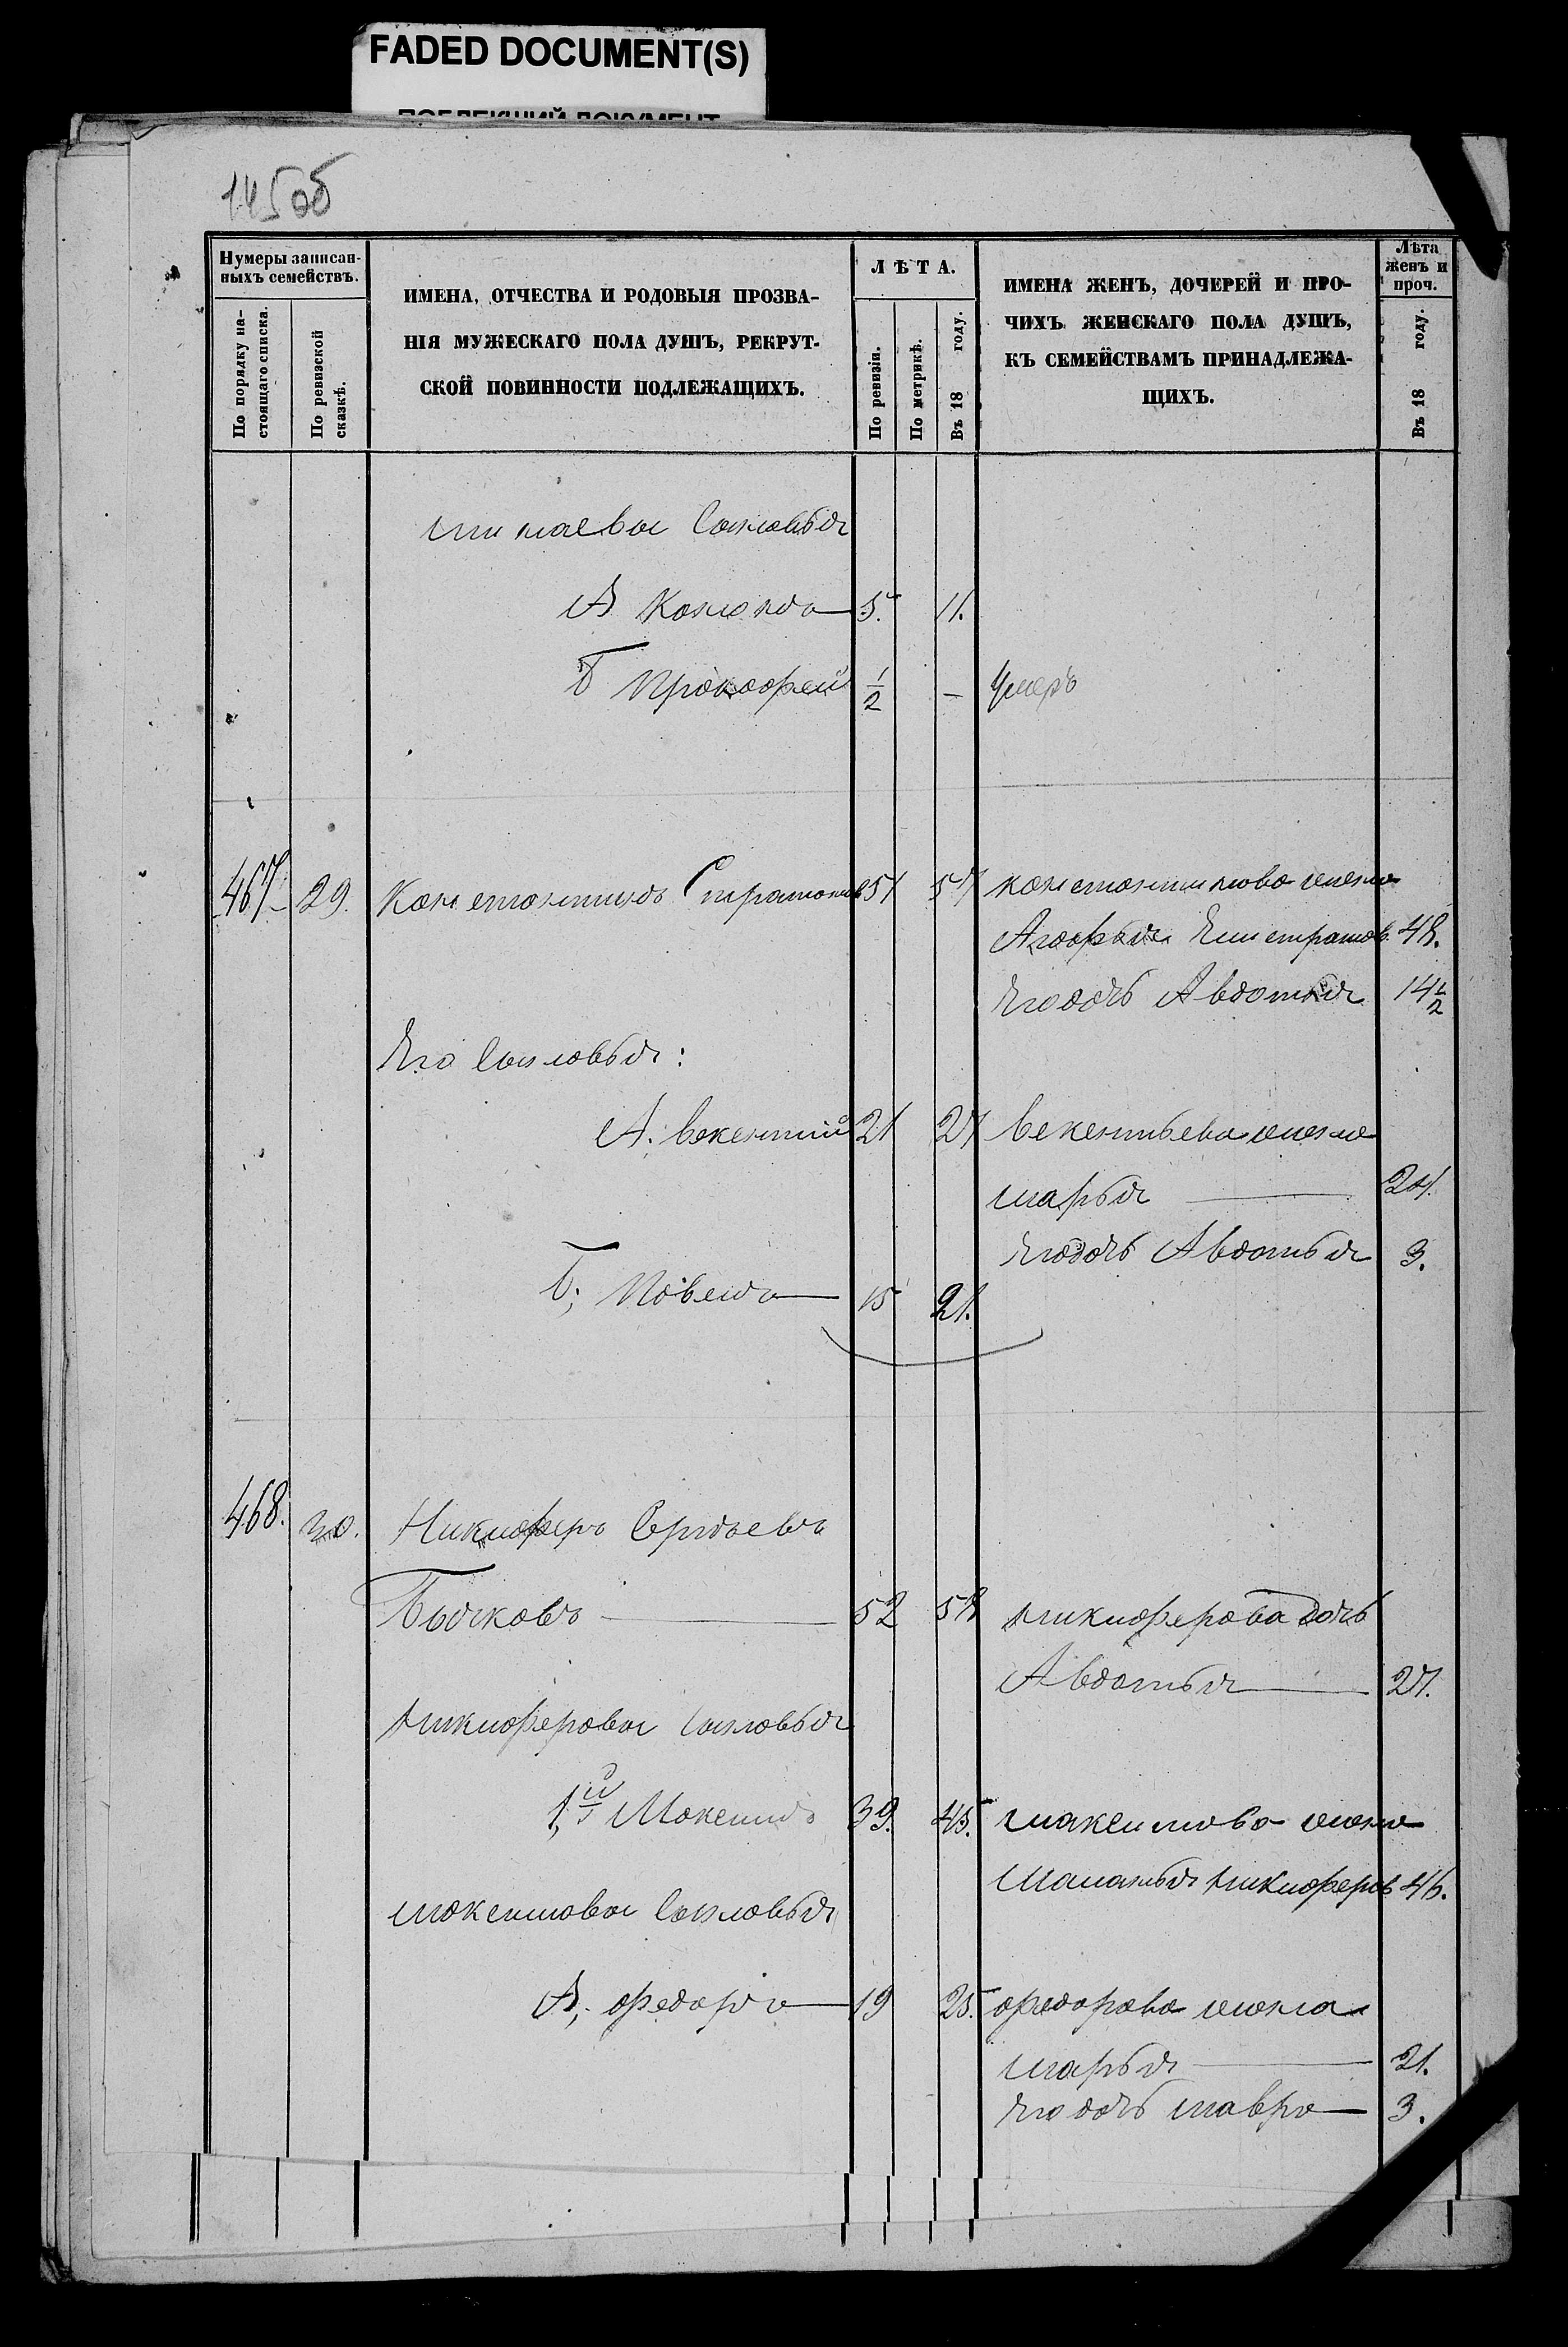 FADED DOCUMENT(S)
ПОБЛЕКШИЙ ДОКУМЕНТ
145об
Нумеры записан-
ныхъ семействъ.
По порядку на-
стоящаго списка.
По ревизской
сказкѣ.
ИМЕНА, ОТЧЕСТВА И РОДОВЫЯ ПРОЗВА-
НІЯ МУЖЕСКАГО ПОЛА ДУШЪ, РЕКРУТ-
СКОЙ ПОВИННОСТИ ПОДЛЕЖАЩИХЪ.
ЛѢТА.
По ревизіи.
По метрикѣ.
Въ 18 году.
ИМЕНА ЖЕНЪ, ДОЧЕРЕЙ И ПРО-
ЧИХЪ ЖЕНСКАГО ПОЛА ДУШЪ,
КЪ СЕМЕЙСТВАМЪ ПРИНАДЛЕЖА-
ЩИХЪ.
Лѣта
женъ и
проч.
Въ 18 году.
сыновья
А 5. 11.
Б Прокофей 1/2 — умеръ
467 29. Константинъ Стратонов 51 57 константинова жена
Епистратов. 48.
Его дочь Авдотья 14 1/2
Его Сыновья:
А. векентий 21 27 векентьева жена
марья 24.
Его дочь Авдотья 3.
Б; Павелъ 15 21.
468. 30. Никиферъ Сергѣевъ
Бычковъ 52 58 никиферова дочь
Авдотья 27.
никиферовы сыновья
1,й Максимъ 39. 45. максимова жена
Маланья никиферов 46.
максимовы сыновья
А, федоръ 19 25. федорова жена
марья 21.
Его дочь мавра 3.